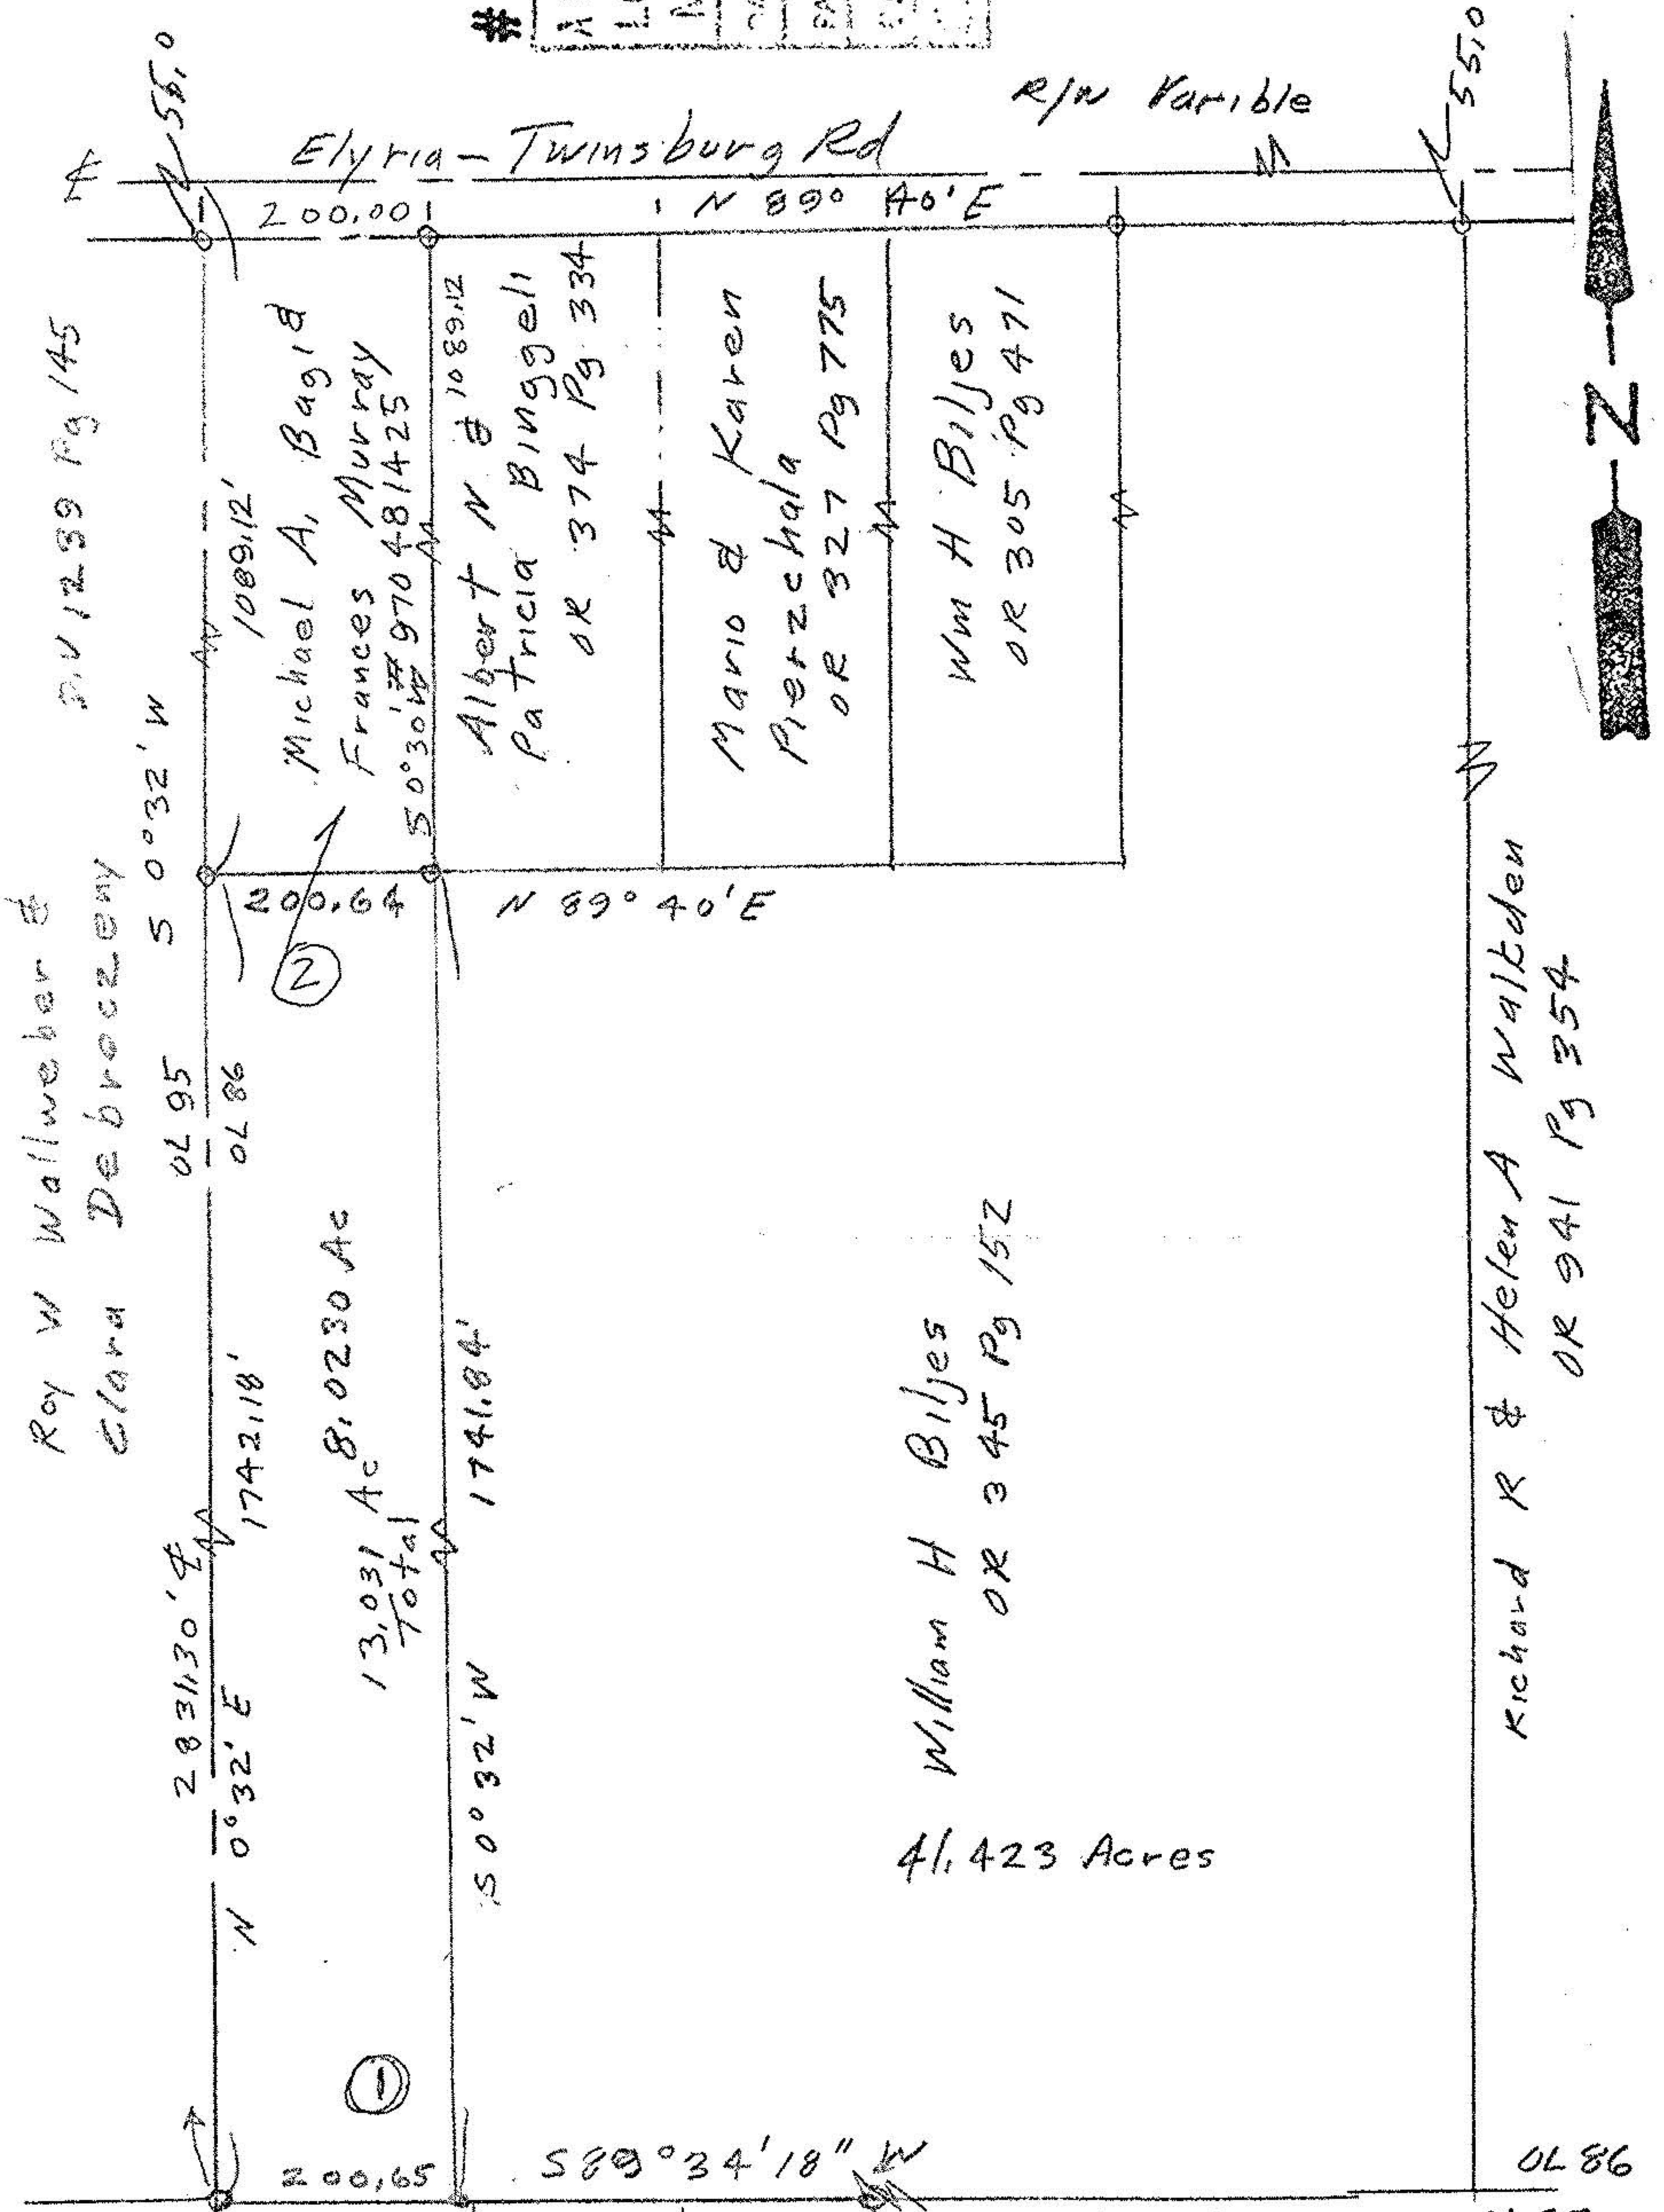 #
55.0
55.0
R/W Varible
Elyria - Twinsburg Rd
200.00
N 89° 40' E
D.V 1239 Pg 145
Roy W Wallweber &
Clara Debroczeny
S 0° 32' W
1089.12'
Michael A, Bagi &
Frances Murray
# 970 481425
S 0° 30' W
1089.12
Albert N &
Patricia Binggeli
OR 374 Pg 334
Mario & Karen
Pierzchala
OR 327 Pg 775
Wm H Biljes
OR 305 Pg 471
N
200.64
N 89° 40' E
2
OL 95
OL 86
2831.30' ₵
N 0° 32' E
1742.18'
8.0230 Ac
13.031 Ac
Total
1741.84'
S 0° 32' W
William H Biljes
OR 345 Pg 152
41.423 Acres
Richard R & Helen A Walkden
OR 941 Pg 354
1
200.65
S 89° 34' 18" W
OL 86